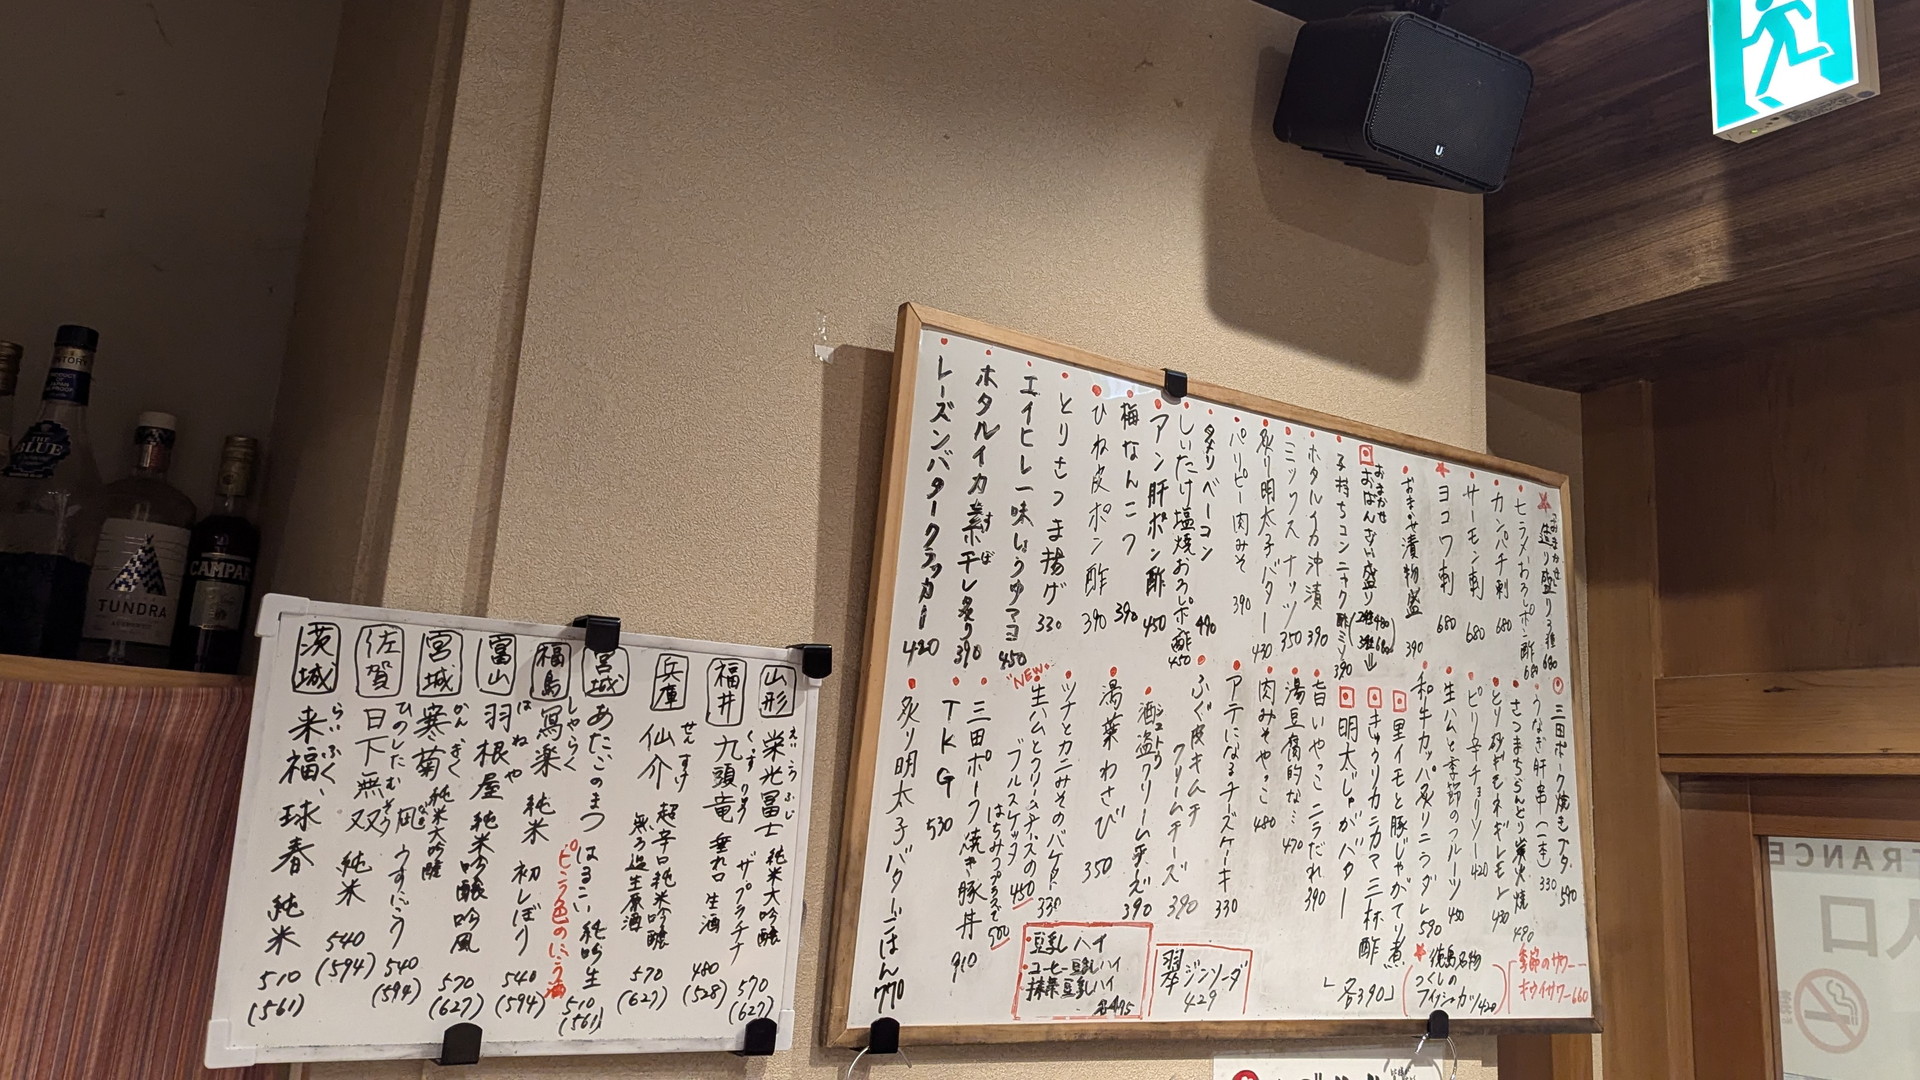 SUNTORY
THE
BLUE
TUNDRA
CAMPARI
山形
栄光冨士 純米大吟醸
えいこうふじ
570
(627)
福井
九頭竜 垂れ口 生酒
くずりゅう
ザ プラチナ
480
(528)
兵庫
仙介
せんすけ
超辛口純米吟醸
無ろ過生原酒
570
(627)
宮城
あたごのまつ はるこい 純吟生
510
(561)
ピンク色のにごり酒
福島
寫楽 純米 初しぼり
しゃらく
540
(594)
富山
羽根屋 純米吟醸 吟風
はねや
570
(627)
宮城
寒菊 純米大吟醸
かんぎく
うすにごり
540
(594)
佐賀
日下無双 純米
ひのしたむそう
540
(594)
茨城
来福 球春 純米
らいふく
510
(561)
おまかせ
造り盛り3種 680
ヒラメおろしポン酢 680
カンパチ刺 680
サーモン刺 680
ヨコワ刺 680
おまかせ漬物盛 390
おまかせ
おばんざい盛り
2種480
3種680
子持ちコンニャク酢ミソ 390
ホタルイカ沖漬 390
ミックスナッツ 350
炙り明太子バター 430
パリピー肉みそ 390
タタリベーコン 490
しいたけ塩焼おろしポン酢 450
アン肝ポン酢 450
梅なんこつ 390
ひね皮ポン酢 390
とりさつま揚げ 330
エイヒレ一味しょうゆマヨ 450
ホタルイカ素干し炙り 390
すぼ
レーズンバタークラッカー 420
三田ポーク焼きブタ 590
うなぎ肝串(一本) 330
さつまちらんどり炭火焼 490
とり砂ギモネギレモン 430
ピリ辛チョリソー 420
生ハムと季節のフルーツ 450
和牛カッパ炙りニラダレ 590
里イモと豚じゃがてり煮
きゅうりカニカマ三杯酢
明太じゃがバター
「各390」
旨いやっこ ニラだれ 390
湯豆腐的な… 470
肉みそやっこ 480
アテになるチーズケーキ 330
ふぐ皮キムチ
クリームチーズ 390
酒盗クリームチーズ 390
シュトウ
湯葉わさび 350
ツナとカニみそのバゲット 330
"NEW"
生ハムとクリームチーズの
ブルスケッタ 450
はちみつプラスで 500
三田ポーク焼き豚丼 910
TKG 530
炙り明太子バターごはん 770
徳島名物
つくしの
フィッシュカツ 420
季節のサワー
キウイサワー 660
翠ジンソーダ
429
豆乳ハイ
コーヒー豆乳ハイ
抹茶豆乳ハイ
各495
ENTRANCE
入口